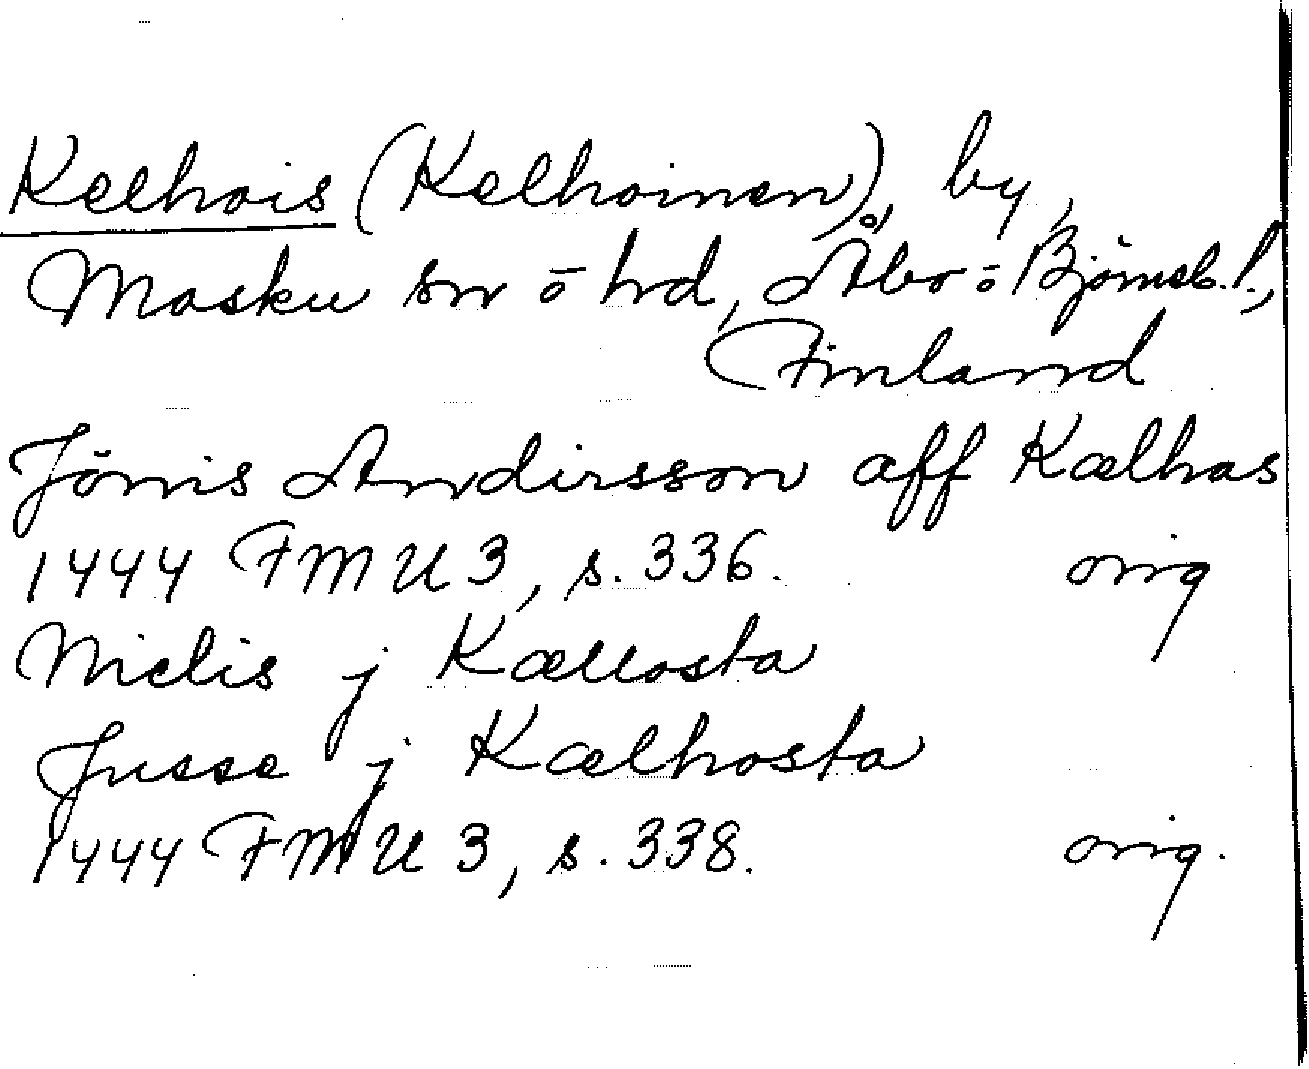 Kelhois (Kelhoinen), by,
Masku sn o hd, Åbo o Björneb. l.,
Finland
Jönis Andirsson aff Kælhas
1444 FMU 3, s. 336. orig
Nielis j Kællosta
Jusse j Kælhosta
1444 FMU 3, s. 338. orig.